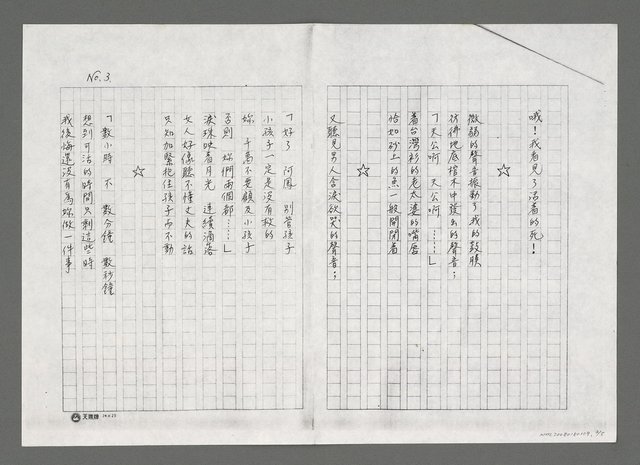 No. 3.
哦！我看見了活着的死！
☆
微弱的聲音振動了我的鼓膜
彷彿地底棺木中發出的聲音；
「天公啊 天公啊 ……」
着台灣衫的老太婆的嘴唇
恰如砂上的魚一般開閉着
☆
又聽見男人含淚欲哭的聲音；
「好了 阿鳳 別管孩子
小孩子一定是沒有救的
妳 千萬不要顧及小孩子
否則 妳們兩個都……」
淚珠映着月光 連續滴落
女人好像聽不懂丈夫的話
只知加緊抱住孩子而不動
☆
「數小時 不 數分鐘 數秒鐘
想到可活的時間只剩這些時
我後悔還沒有為妳做一件事
天鵝牌 24×25